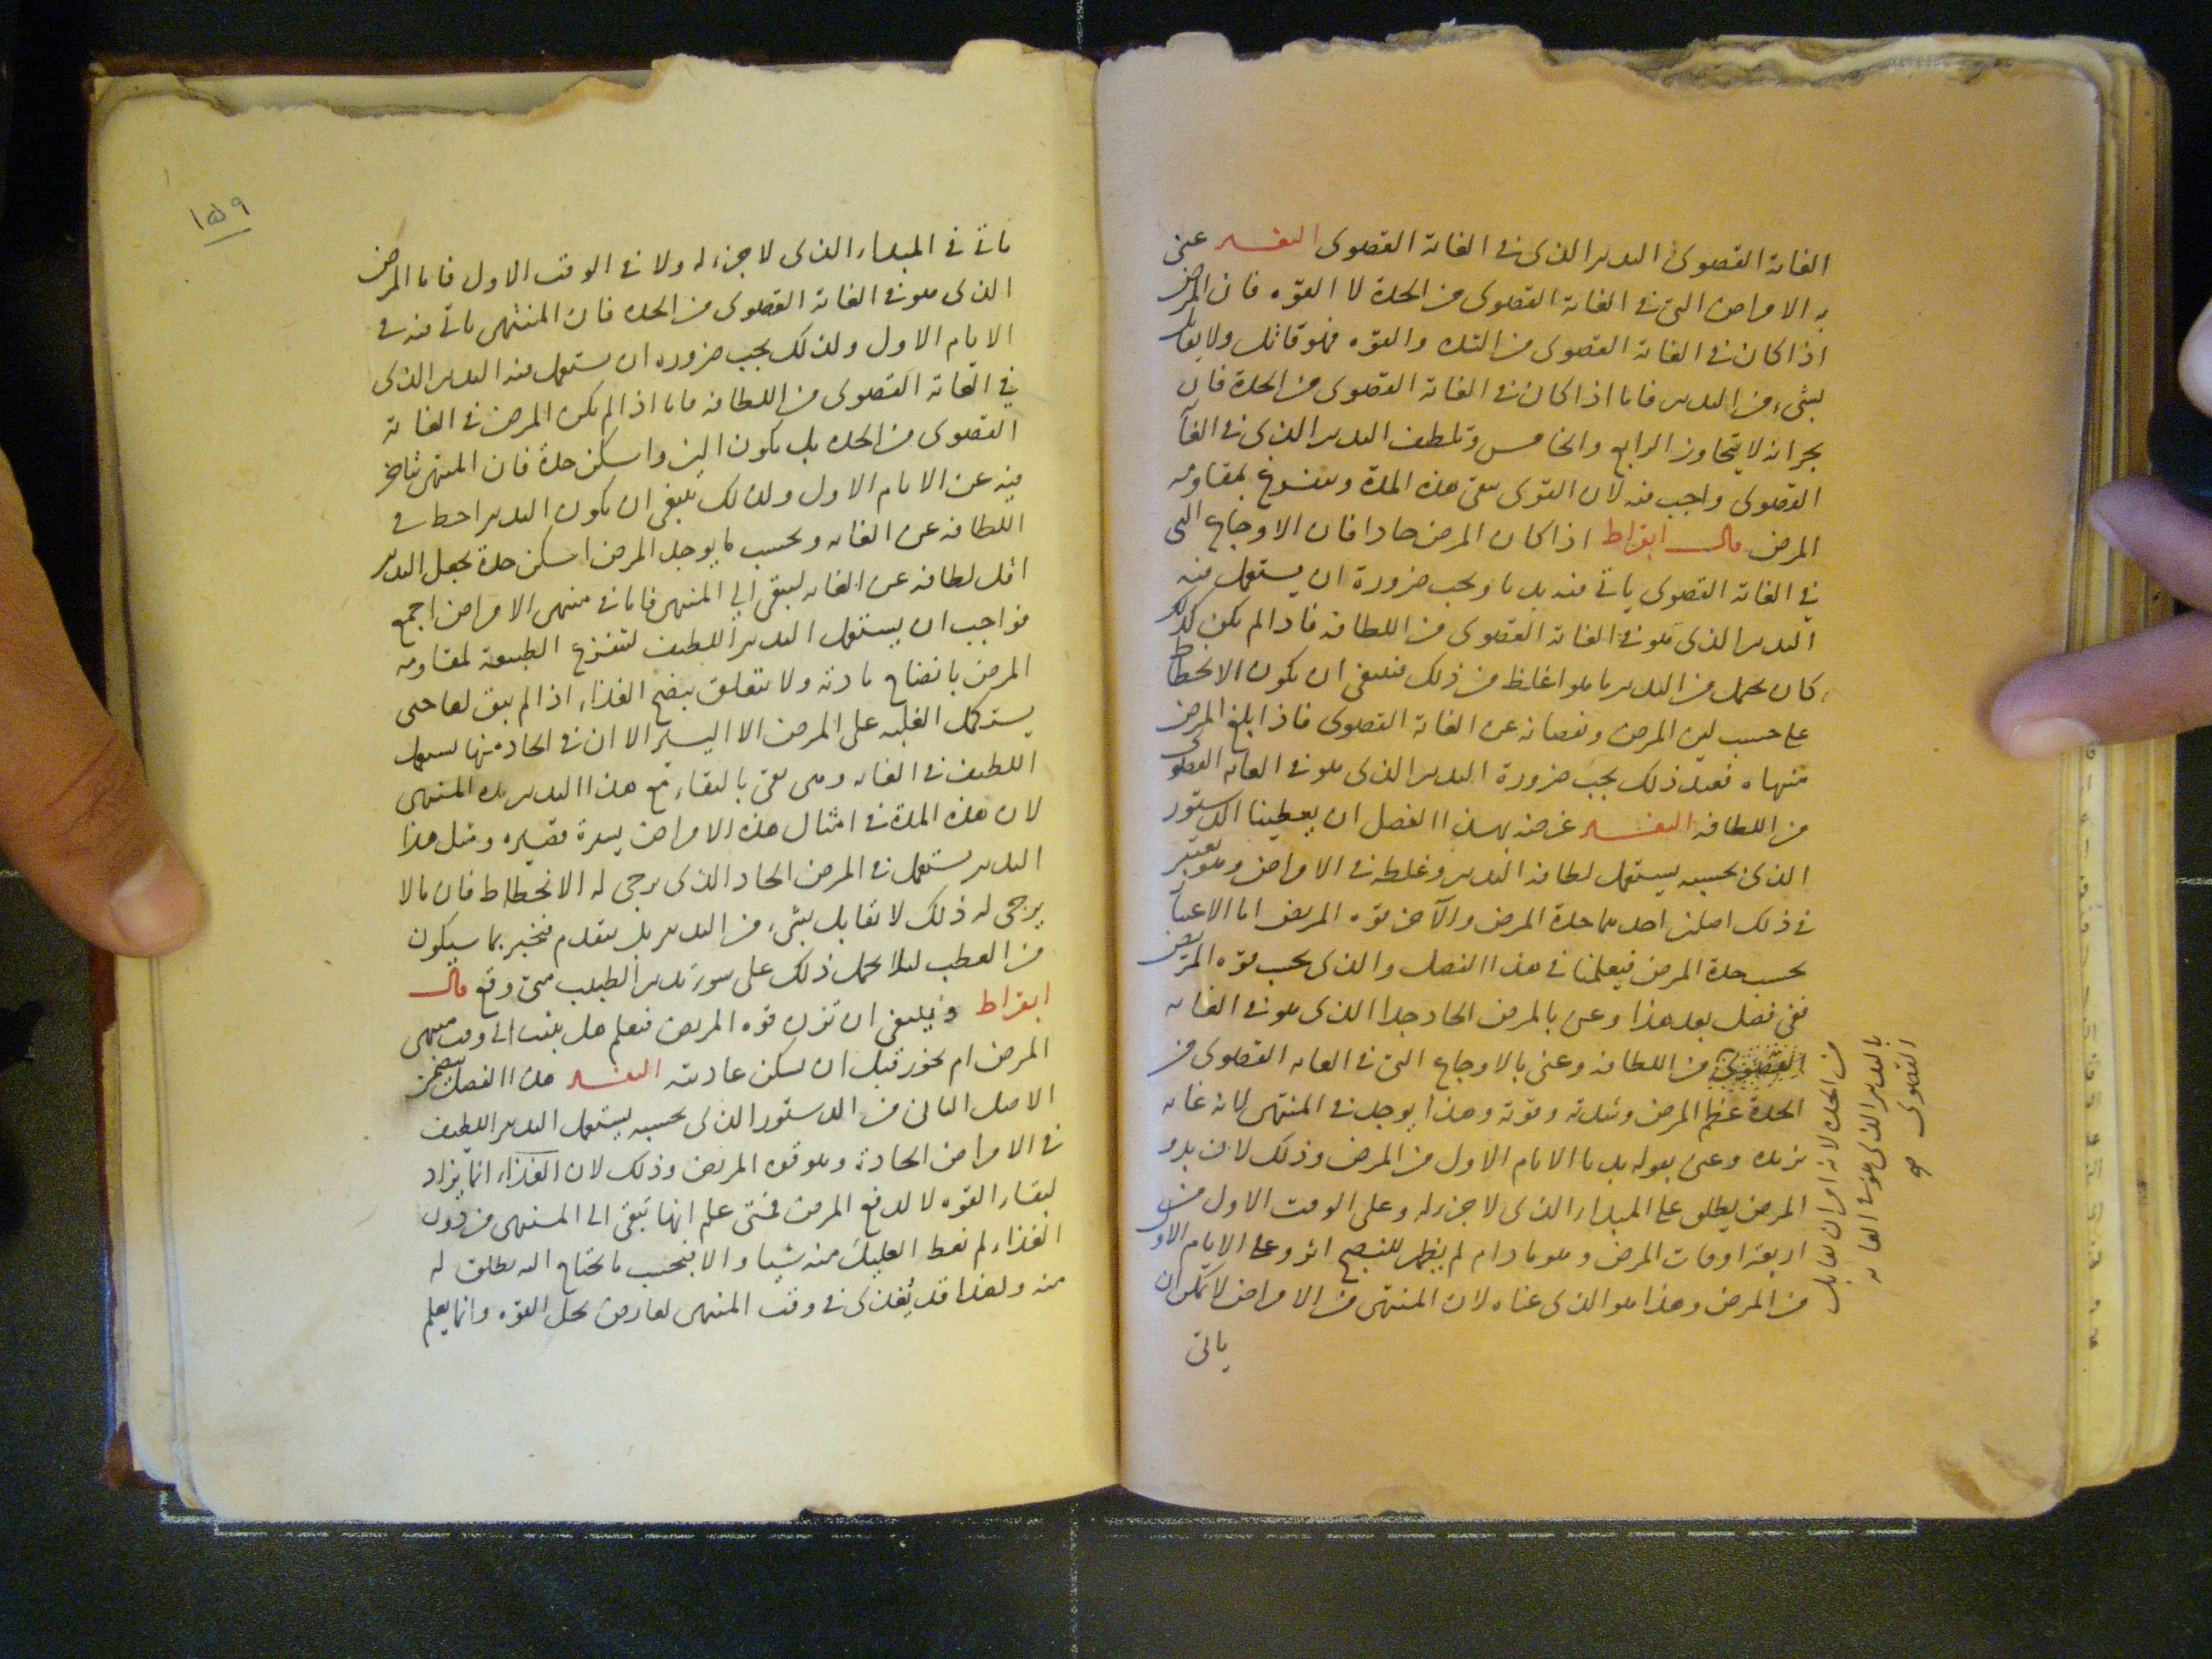 الغاية القصوى التدبير الذى فى الغاية القصوى التفسير عنى
به الامراض التى فى الغاية القصوى من الحدة لا القوه فان المرض
اذا كان فى الغاية القصوى من الشده والقوه فهو قاتل ولا يقابل
بشىء من التدبير فاما اذا كان فى الغاية القصوى من الحدة فان
بحرانه لا يتجاوز الرابع والخامس وتلطيف التدبير الذى فى الغاية
القصوى واجب فيه لان القوى تبقى هذه المدة ويتفرغ لمقاومه
المرض قال ابقراط اذا كان المرض حادا فان الاوجاع التى
فى الغاية القصوى ياتى فيه بديا ويجب ضرورة ان يستعمل فيه
التدبير الذى هو فى الغاية القصوى من اللطافه فاذا لم يكن كذلك
كان يحتمل من التدبير ما هو اغلظ من ذلك فينبغى ان يكون الانحطاط
على حسب لين المرض ونقصانه عن الغاية القصوى فاذا بلغ المرض
منتهاه فعند ذلك يجب ضرورة التدبير الذى هو فى الغايه القصوى
من اللطافه التفسير غرضه بهذا الفصل ان يعطينا الدستور
الذى بحسبه يستعمل لطافه التدبير وغلظه فى الامراض وهو يعتبر
فى ذلك اصلين احدهما حدة المرض والآخر قوه المريض اما الاعتبار
بحسب حدة المرض فيعلمنا فى هذا الفصل والذى بحسب قوه المريض
ففى فصل بعد هذا وعنى بالمرض الحاد جدا الذى هو فى الغايه
القصوى من اللطافه وعنى بالاوجاع التى فى الغايه القصوى من
الحدة عظم المرض وشدته وقوته وهذا يوجد فى المنتهى لانه غايه
تزيده وعنى بقوله بديا الايام الاول من المرض وذلك لان بدو
المرض يطلق على المبداء الذى لا جزء له وعلى الوقت الاول من
اربعة اوقات المرض وهو ما دام لم يظهر للنضج اثر وعلى الايام الاول
من المرض وهذا هو الذى عناه لان المنتهى من الامراض لا يمكن ان
ياتى
من الحده لانه امران يقابل
بالتدبير الذى هو فى الغايه
القصوى صح
١٥٩
ياتى فى المبداء الذى لا جزء له ولا فى الوقت الاول فاما المرض
الذى هو فى الغاية القصوى من الحده فان المنتهى ياتى فيه فى
الايام الاول ولذلك يجب ضروره ان يستعمل فيه التدبير الذى
فى الغاية القصوى من اللطافه فاما اذا لم يكن المرض فى الغاية
القصوى من الحده بل يكون الين واسكن حدة فان المنتهى يتاخر
فيه عن الايام الاول ولذلك ينبغى ان يكون التدبير احط فى
اللطافه عن الغايه وبحسب ما يوجد المرض اسكن حدة يجعل التدبير
اقل لطافه عن الغايه ليبقى الى المنتهى فاما فى منتهى الامراض اجمع
فواجب ان يستعمل التدبير اللطيف لتتفرغ الطبيعة لمقاومه
المرض بانضاج مادته ولا تتعلق بنضج الغذاء اذا لم يبق لها حتى
يستكمل الغلبه على المرض الا اليسير الا ان فى الحاده منها يستعمل
اللطيف فى الغايه وهى تفى بالبقاء مع هذا التدبير مده المنتهى
لان هذه المدة فى امثال هذه الامراض يسيرة قصيره ومثل هذا
التدبير يستعمل فى المرض الحاد الذى يرجى له الانحطاط فان ما لا
يرجى له ذلك لا تقابل بشىء من التدبير بل يتقدم فيخبر بما سيكون
من العطب ليلا يحمل ذلك على سوء تدبير الطبيب متى وقع قال
ابقراط وينبغى ان تزن قوه المريض فتعلم هل يثبت الى وقت منتهى
المرض ام يخور قبل ان يسكن عاديته التفسير هذا الفصل يتضمن
الاصل الثانى من الدستور الذى بحسبه يستعمل التدبير اللطيف
فى الامراض الحادة وهو قوه المريض وذلك لان الغذاء انما يزاد
لبقاء القوه لا لدفع المرض فمتى علم انها تبقى الى المنتهى من دون
الغذاء لم نعط العليل منه شيا والا فبحسب ما يحتاج اليه يطلق له
منه ولهذا قد يغذى فى وقت المنتهى لعارض يحل القوه وانما يعلم